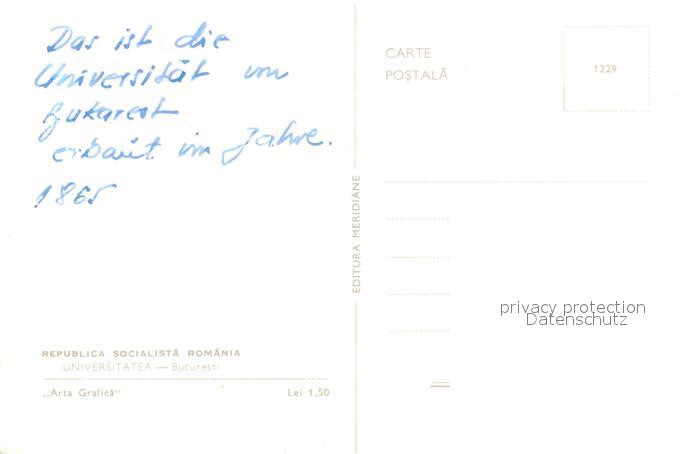 Das ist die
Universität von
Bukarest
erbaut im Jahre.
1865
REPUBLICA SOCIALISTĂ ROMÂNIA
UNIVERSITATEA — Bucureşti
„Arta Grafică“ Lei 1,50
EDITURA MERIDIANE
CARTE
POŞTALĂ
1229
privacy protection
Datenschutz